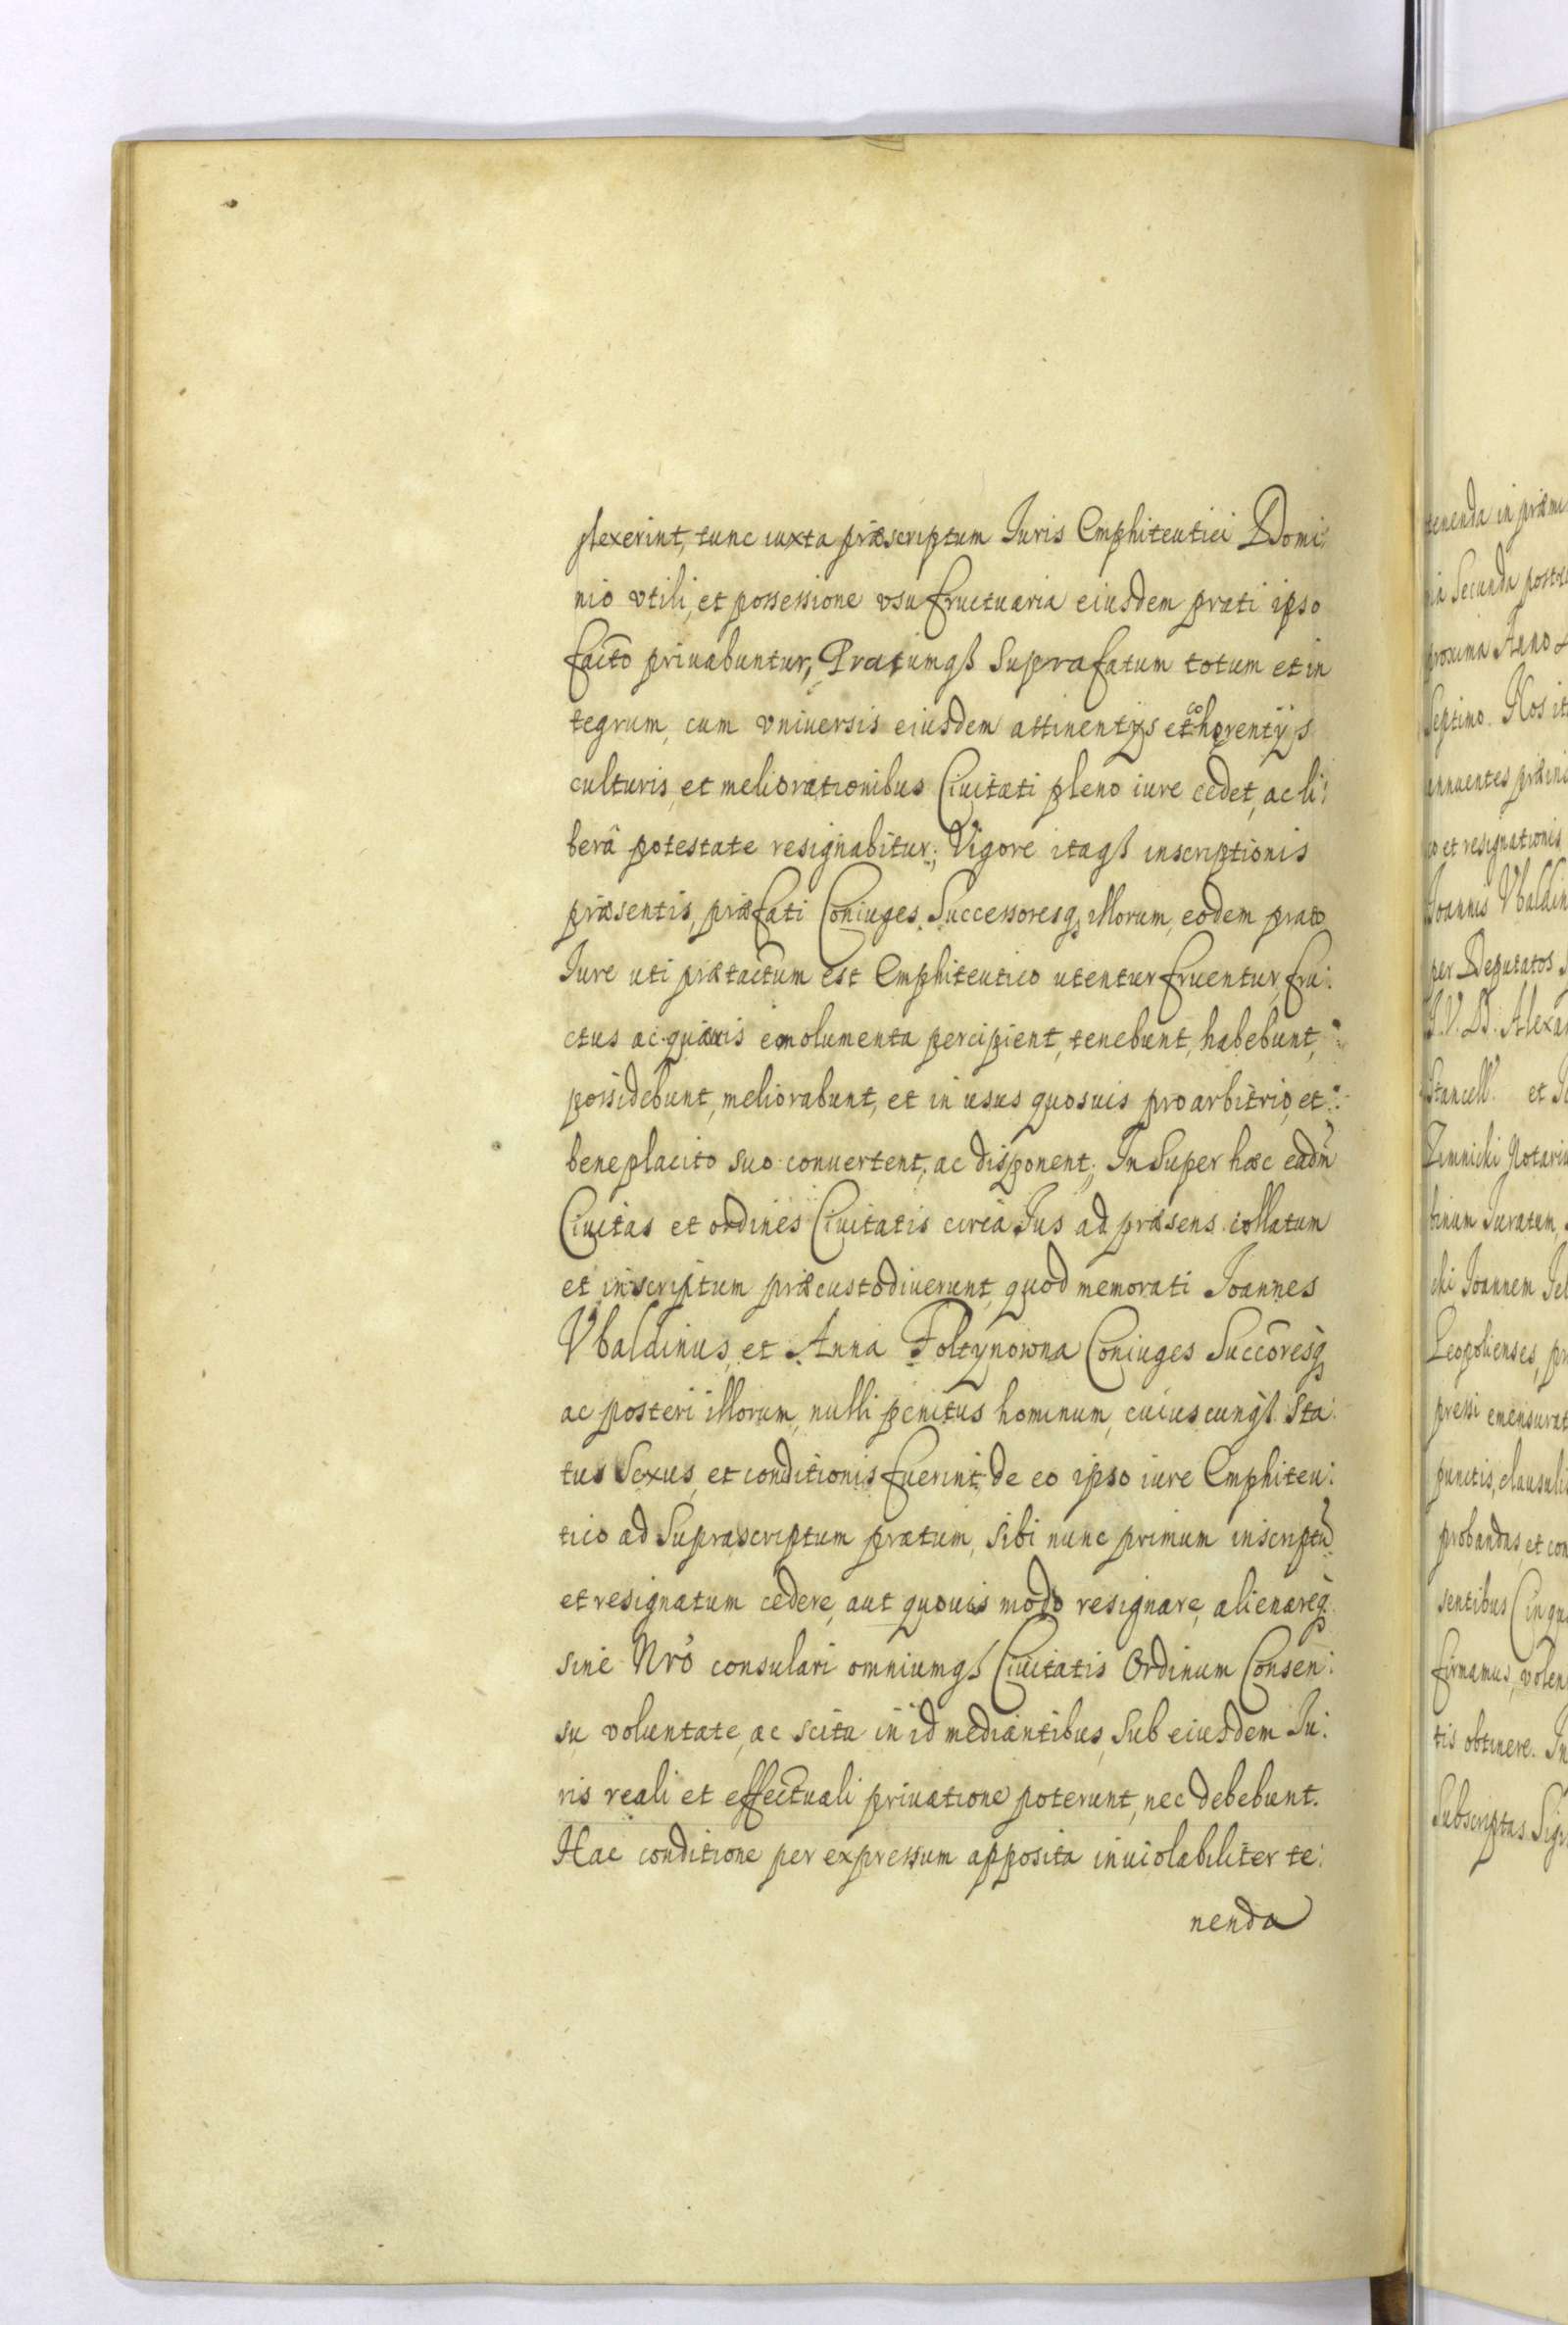 plexerint, tunc iuxta præscriptum Iuris Emphiteutici Domi:
nio vtili, et possessione vsufructuaria eiusdem prati ipso
facto priuabuntur, Pratumqß suprafatum totum et in
tegrum, cum vniuersis eiusdem attinentÿs et cohęrentÿs
culturis, et meliorationibus Ciuitati pleno iure cedet, ac li:
berâ potestate resignabitur; Vigore itaqß inscriptionis
præsentis, præfati Coniuges Successoresq illorum, eodem prato
Iure uti prætactum est Emphiteutico utentur fruentur, fru:
ctus ac quævis emolumenta percipient, tenebunt, habebunt,
possidebunt, meliorabunt, et in usus quosuis pro arbitrio, et
beneplacito suo conuertent, ac disponent; Insuper hæc eadm
Ciuitas et ordines Ciuitatis circa Ius ad præsens collatum
et inscriptum præcustodiuerunt, quod memorati Joannes
Vbaldinus, et Anna Foltynowna Coniuges Succoresq
ac posteri illorum, nulli penitus hominum, cuiuscunqß sta:
tus sexus, et conditionis fuerint, de eo ipso iure Emphiteu:
tico ad suprascriptum pratum, sibi nunc primum inscriptu
et resignatum cedere, aut quouis modo resignare, alienareq
sine Nro consulari omniumqß Ciuitatis Ordinum Consen:
su voluntate, ac scitu in id mediantibus, sub eiusdem Iu:
ris reali et effectuali priuatione poterunt, nec debebunt.
Hac conditione per expressum apposita inuiolabiliter te:
nenda
tenenda in præmi
Secunda post
proxima Anno
Septimo. Nos it
annuentes
et resignationis
Joannis Vbaldin
per Deputatos
J.V.D. Alexa
Stancell. et
Zimnicki Notari
Juratum,
cki Joannem
Leopolienses, pr
pressi emensurat
punctis, clausulis
probandas, et con
sentibus
firmamus, volen
tis obtinere. In
Subscriptas Sigi